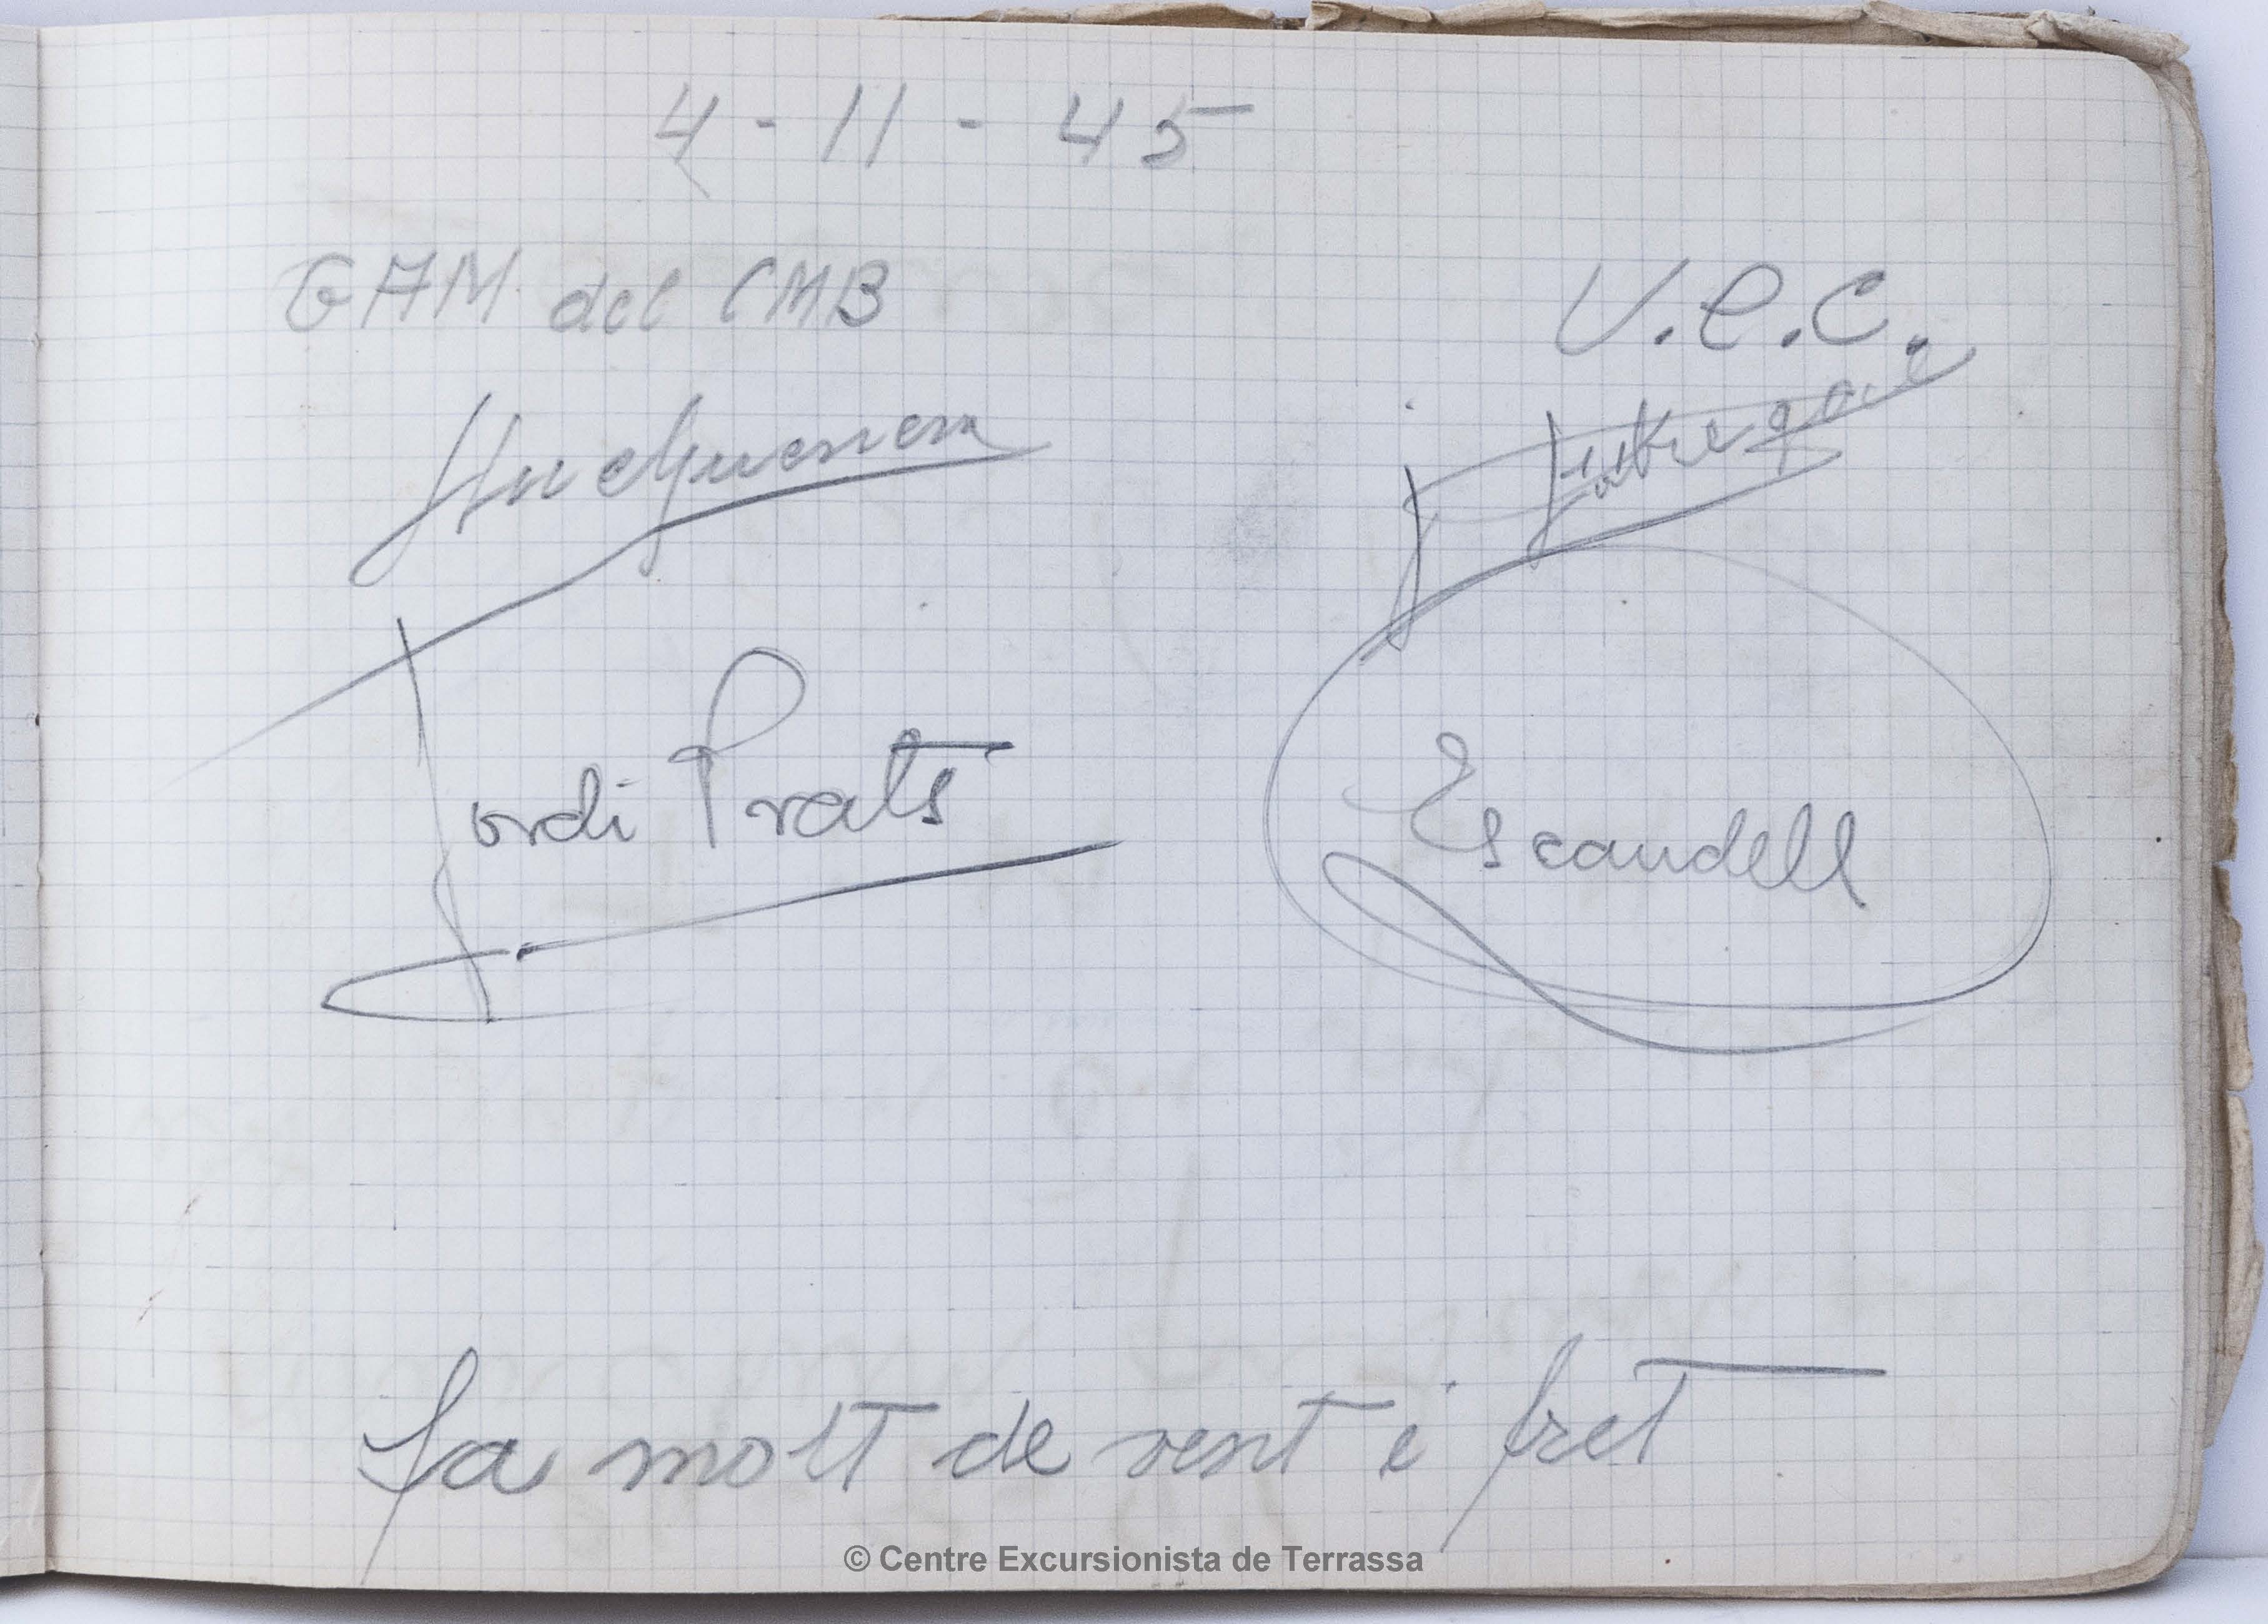 4-11-45
GAM del CMB
U.E.C.
Jordi Prats
Escandell
Fa molt de vent i fret
© Centre Excursionista de Terrassa